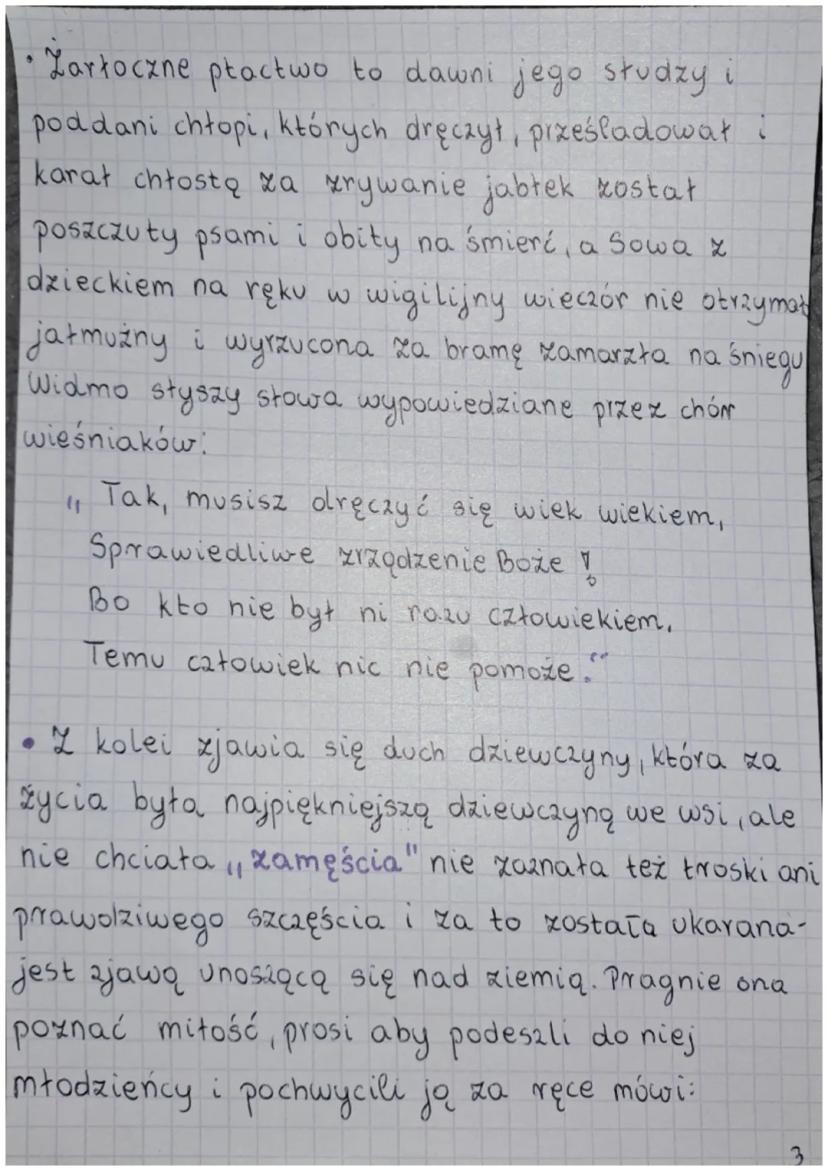 • Żarłoczne ptactwo to dawni jego słudzy i
poddani chłopi, których dręczył, prześladował i
karał chłostą za zrywanie jabłek został
poszczuty psami i obity na śmierć, a Sowa z
dzieckiem na ręku w wigilijny wieczór nie otrzymał
jałmużny i wyrzucona za bramę zamarzła na śniegu
Widmo słyszy słowa wypowiedziane przez chór
wieśniaków:
„ Tak, musisz dręczyć się wiek wiekiem,
Sprawiedliwe zrządzenie Boże !
Bo kto nie był ni razu człowiekiem,
Temu człowiek nic nie pomoże."
• Z kolei zjawia się duch dziewczyny, która za
życia była najpiękniejszą dziewczyną we wsi, ale
nie chciała „zamęścia" nie zaznała też troski ani
prawdziwego szczęścia i za to została ukarana-
jest zjawą unoszącą się nad ziemią. Pragnie ona
poznać miłość, prosi aby podeszli do niej
młodzieńcy i pochwycili ją za ręce mówi:
3